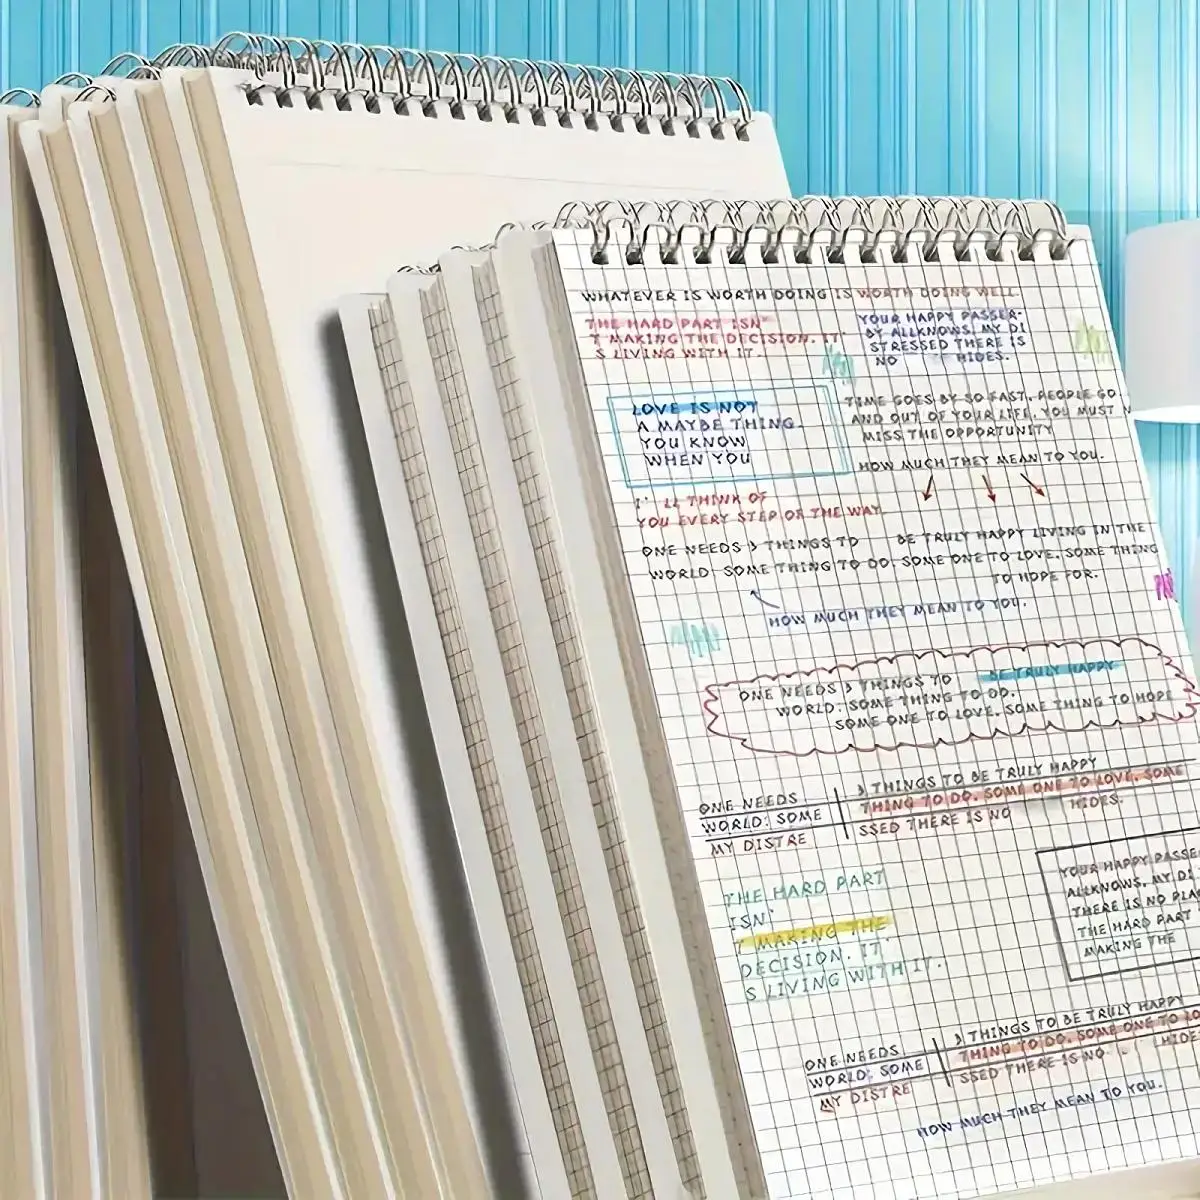 WHATEVER IS WORTH DOING IS WORTH DOING WELL.
THE HARD PART ISN'
T MAKING THE DECISION. IT
S LIVING WITH IT.
YOUR HAPPY PASSER-
BY ALLKNOWS, MY DI
STRESSED THERE IS
NO HIDES.
LOVE IS NOT
A MAYBE THING.
YOU KNOW
WHEN YOU
TIME GOES BY SO FAST, PEOPLE GO
AND OUT OF YOUR LIFE. YOU MUST N
MISS THE OPPORTUNITY
HOW MUCH THEY MEAN TO YOU.
I' LL THINK OF
YOU EVERY STEP OF THE WAY.
ONE NEEDS 3 THINGS TO BE TRULY HAPPY LIVING IN THE
WORLD: SOME THING TO DO. SOME ONE TO LOVE. SOME THING
TO HOPE FOR.
HOW MUCH THEY MEAN TO YOU.
ONE NEEDS 3 THINGS TO BE TRULY HAPPY
WORLD: SOME THING TO DO.
SOME ONE TO LOVE. SOME THING TO HOPE
3 THINGS TO BE TRULY HAPPY
ONE NEEDS THING TO DO. SOME ONE TO LOVE. SOME
WORLD: SOME SSED THERE IS NO HIDES.
MY DISTRE
THE HARD PART
ISN'
T MAKING THE
DECISION. IT
S LIVING WITH IT.
YOUR HAPPY PASSE
ALLKNOWS, MY DI
THERE IS NO PLA
THE HARD PART
MAKING THE
3 THINGS TO BE TRULY HAPPY
ONE NEEDS THING TO DO. SOME ONE TO LO
WORLD: SOME SSED THERE IS NO HIDE
MY DISTRE
HOW MUCH THEY MEAN TO YOU.